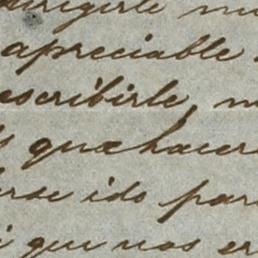 dirigirle
apreciable
escribirle,
quehacer
ido par
qui nos er